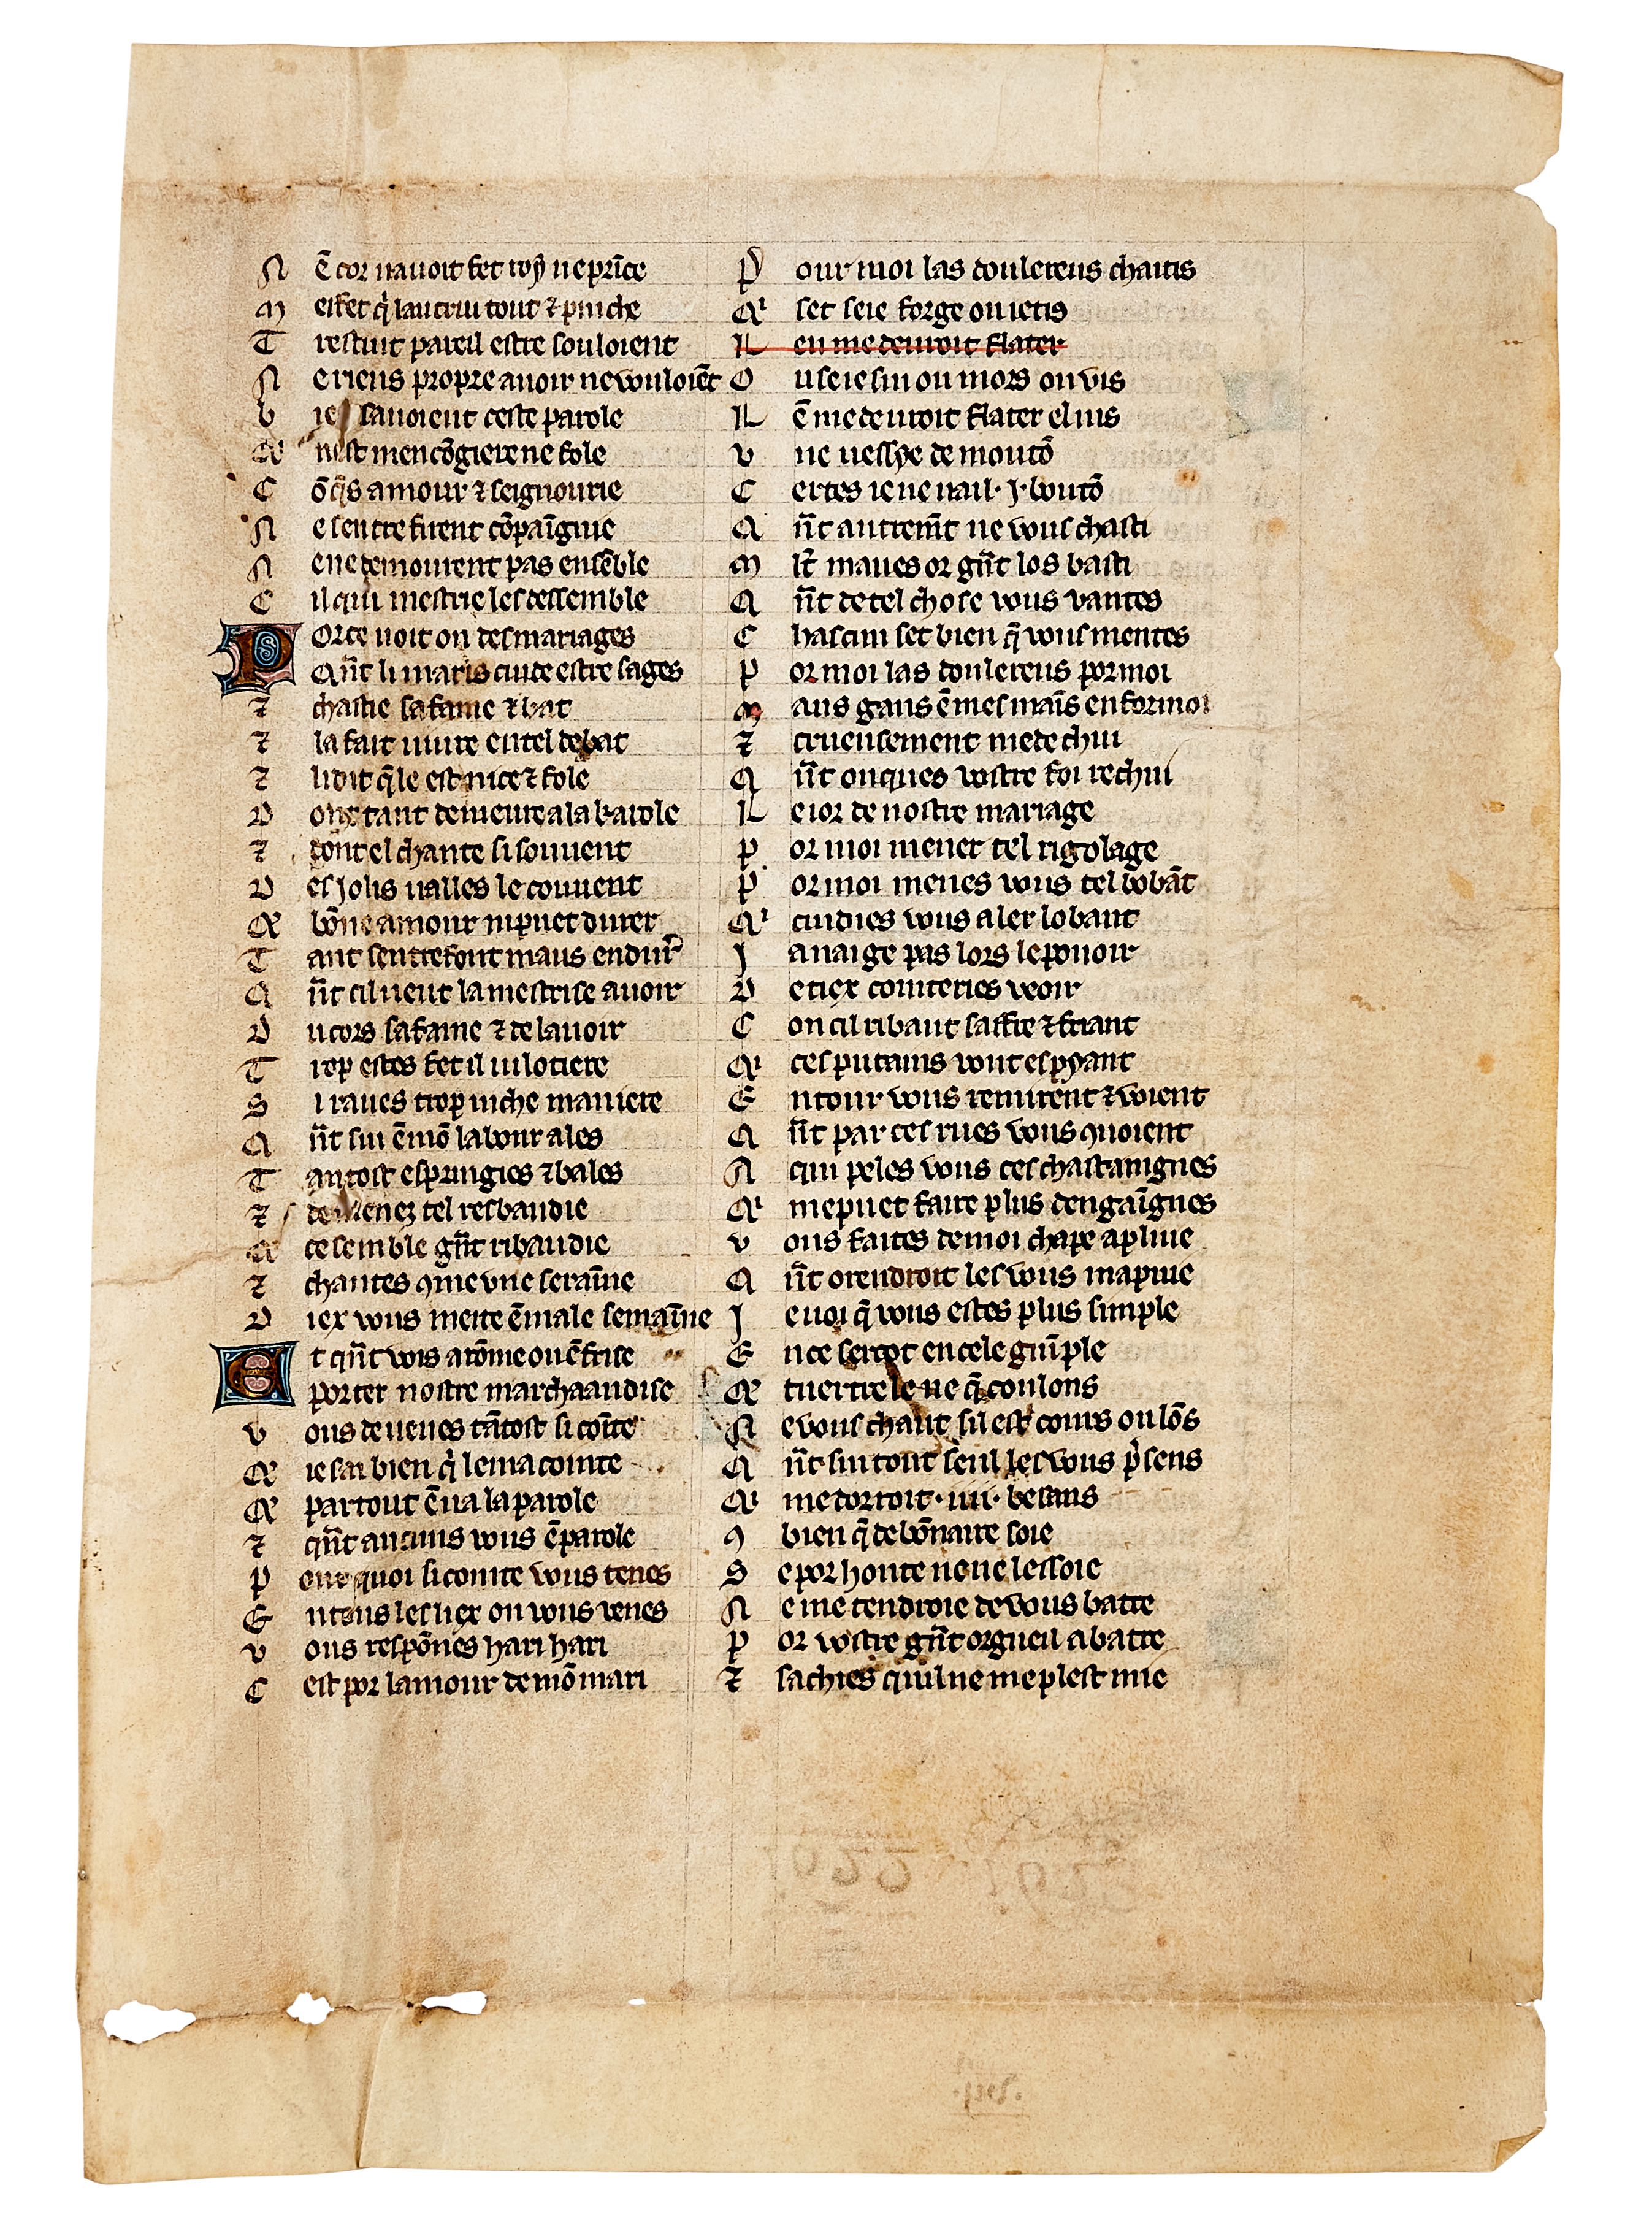 N ē cor navoit fet roy ne prīce
M effet q̇ lautrui tout ⁊ pinche
T restuit pareil estre souloient
N e riens propre avoir ne vouloiēt
b ie savoient ceste parole
Q nest mencōgiere ne fole
C ōq̄s amour ⁊ seignourie
N e sentrefirent cōpaīgnie
N e ne demourent pas ensēble
C il qui mestrie les dessemble
P or ce voit on des mariages
Qn̄t li maris cuide estre sages
⁊ chastie sa fame ⁊ bat
⁊ la fait vivre en tel debat
⁊ li dit q̄le est nice ⁊ fole
D ont tant demeure a la karole
⁊ dont el chante si souvent
D es jolis valles le couvent
Q bōne amour ni puet durer
T ant sentrefont maus endur̄
Q n̄t cil veut la mestrise avoir
D u cors sa fame ⁊ de lavoir
T rop estes fet il vilotiere
S i raves trop niche maniere
Q n̄t sui ē mō labour ales
T antost espringies ⁊ bales
⁊ demenez tel resbaudie
Q ce semble gn̄t ribaudie
⁊ chantes ꝯme une seraīne
D iex vous mete ē male semaīne
E t qn̄t vois a rōme ou ē frise
porter nostre marchaandise
v ous devenes tātost si coīte
Q ie sai bien q̇ le ma cointe
Q partout ē va la parole
⁊ qn̄t aucuns vous ēparole
P our quoi si cointe vous tenes
E n tous les liex ou vous venes
v ous respōnes hari hari
C est por lamour de mō mari
P our moi las doulereus chaitis
Q' set se ie forge ou ie tis
L en me devroit flater
O u se ie sui ou mors ou vis
L ē me devroit flater el vis
v ne vessye de moutō
C ertes ie ne vail · J · boutō
Q n̄t autremt̄ ne vous chasti
M lt̄ maves or gn̄t los basti
Q n̄t de tel chose vous vantes
C hascun set bien q̄ vous mentes
P or moi las doulereus por moi
M aus gans ē mes maīs enformoi
⁊ crueusement me dechui
Q n̄t onques vostre foi rechui
L e ior de nostre mariage
P or moi mener tel rigolage
P or moi menes vous tel bōbāt
Q' cuidies vous aler lobant
J a naige pas lors le pouoir
D e tiex cointeries veoir
C on cil ribaut saffre ⁊ friant
Q' ces putains vont espyant
E ntour vous remirent ⁊ voient
Q n̄t par ces rues vous ꝯvoient
A qui peles vous ces chastaingnes
Q' me puet faire plus dengaīgnes
v ous faites de moi chape a pluie
Q n̄t orendroit les vous mapuie
J e voi q̄ vous estes plus simple
E n ce sercot en cele guīple
Q tuertrele ne q̄ coulons
N e vous chaut sil est cours ou lōs
Q n̄t sui tout seul les vous p̄sens
Q' me dorroit · iiii · besans
ꝯ bien q̄ debōnaire soie
S e por honte ne ne lessoie
N e me tendroie de vous batre
P or vostre gn̄t orgueil abatre
⁊ sachies quil ne me plest mie